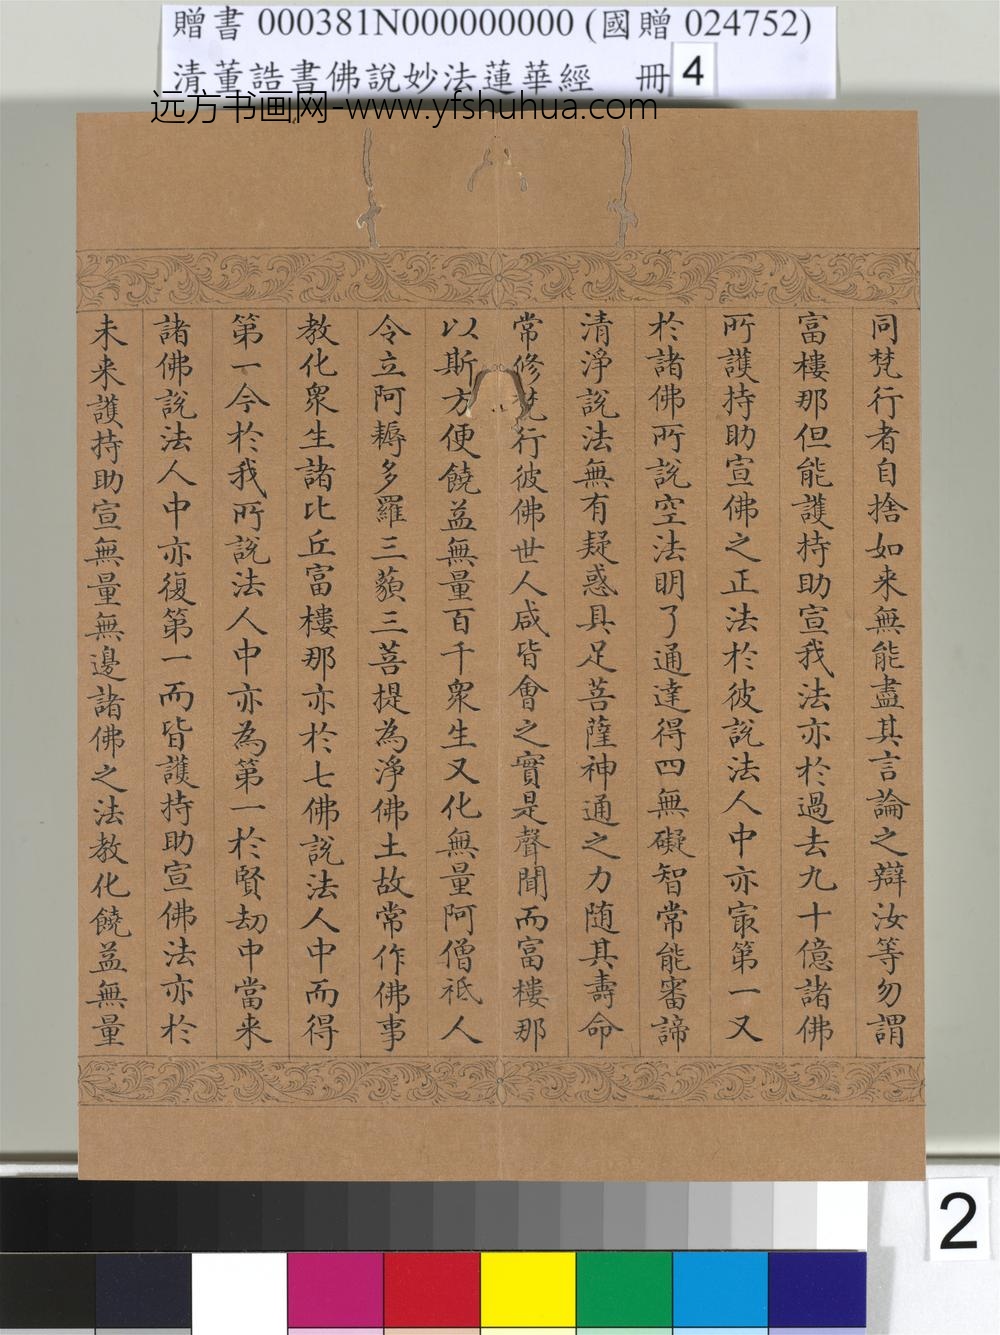 贈書 000381N000000000 (國贈 024752)
清董誥書佛說妙法蓮華經 冊 4
远方书画网-www.yfshuhua.com
同梵行者自捨如来無能盡其言論之辯汝等勿謂
富樓那但能護持助宣我法亦於過去九十億諸佛
所護持助宣佛之正法於彼說法人中亦㝡第一又
於諸佛所說空法明了通達得四無礙智常能審諦
清淨說法無有疑惑具足菩薩神通之力随其壽命
常修梵行彼佛世人咸皆會之實是聲聞而富樓那
以斯方便饒益無量百千衆生又化無量阿僧祇人
令立阿耨多羅三藐三菩提為淨佛土故常作佛事
教化衆生諸比丘富樓那亦於七佛說法人中而得
第一今於我所說法人中亦為第一於賢劫中當来
諸佛說法人中亦復第一而皆護持助宣佛法亦於
未来護持助宣無量無邊諸佛之法教化饒益無量
2